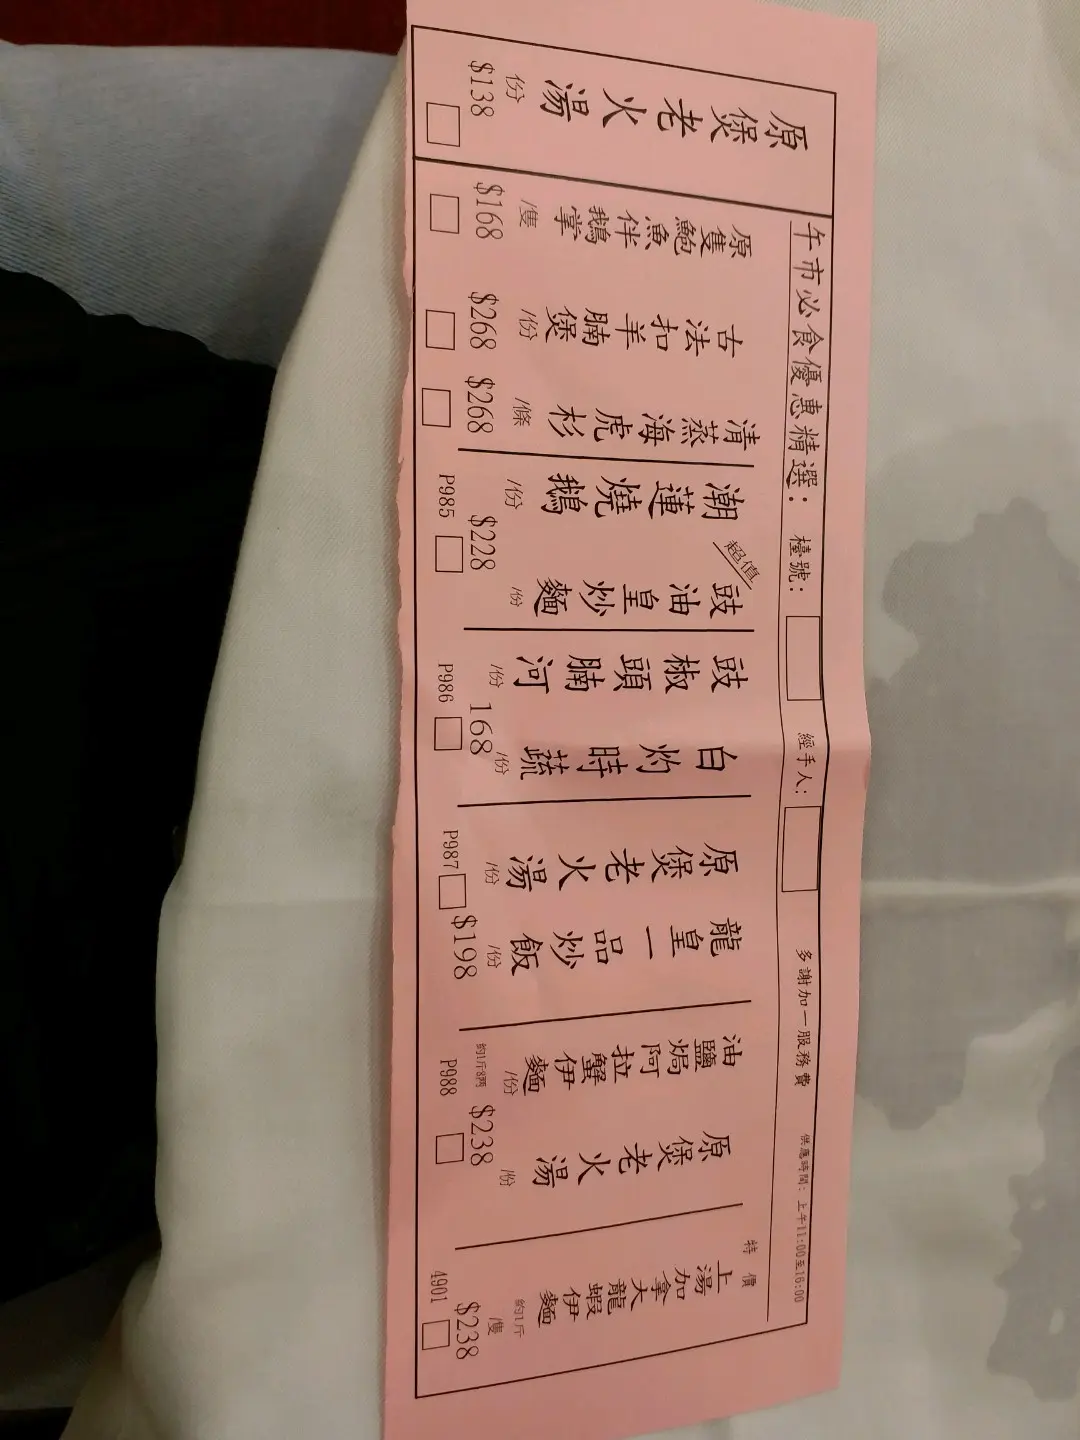 午市必食優惠精選：
檯號：
經手人：
多謝加一服務費
供應時間：上午11:00至16:00
原煲老火湯
份
$138
原隻鮑魚伴鵝掌
/隻
$168
古法扣羊腩煲
/份
$268
清蒸海虎杉
/條
$268
潮蓮燒鵝
/份
超值
豉油皇炒麵
/份
P985
$228
豉椒頭腩河
/份
白灼時蔬
/份
P986
168
原煲老火湯
/份
龍皇一品炒飯
/份
P987
$198
油鹽焗阿拉蟹伊麵
約1斤8兩
/份
原煲老火湯
/份
P988
$238
特價
上湯加拿大龍蝦伊麵
約1斤
/隻
4901
$238